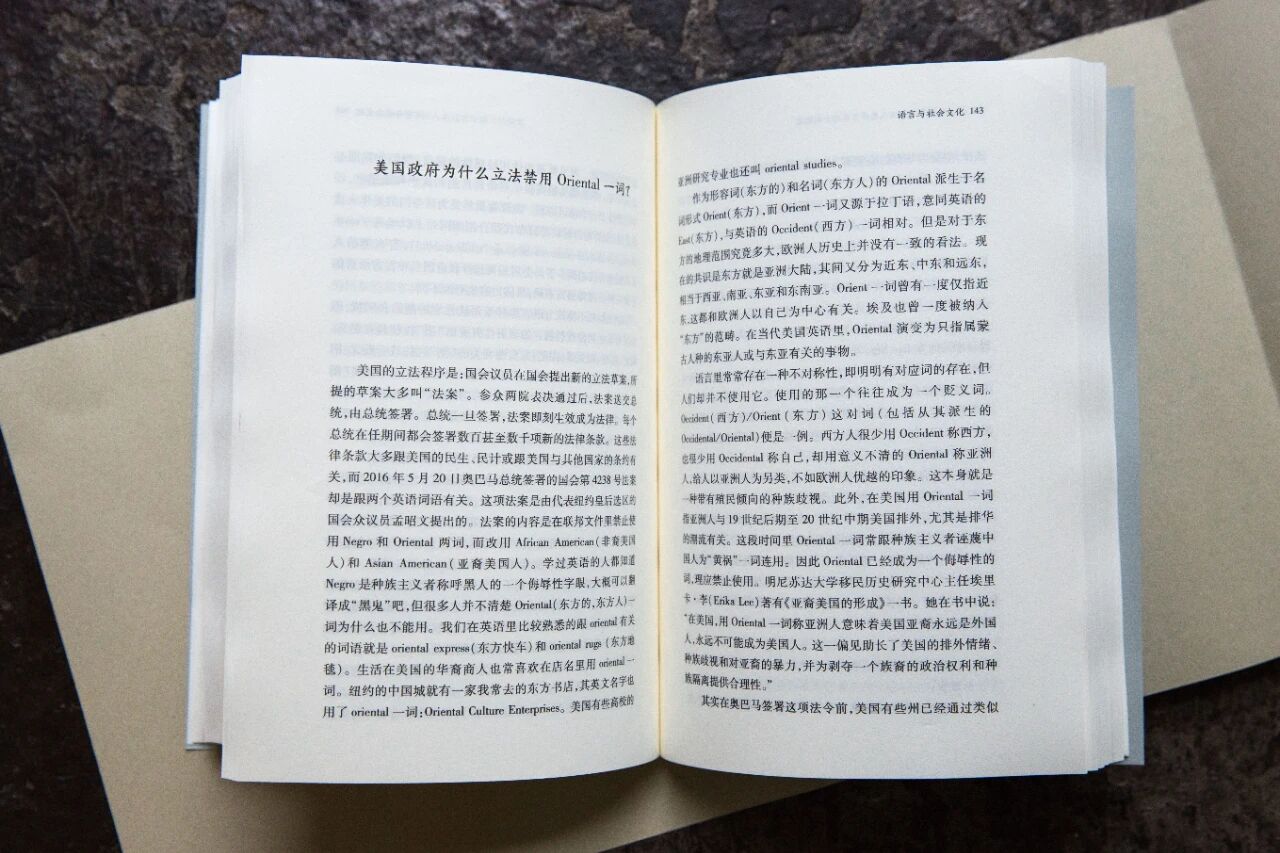 美国政府为什么立法禁用 Oriental 一词?
美国的立法程序是:国会议员在国会提出新的立法草案,所
提的草案大多叫“法案”。参众两院表决通过后,法案送交总
统,由总统签署。总统一旦签署,法案即刻生效成为法律。每个
总统在任期间都会签署数百甚至数千项新的法律条款。这些法
律条款大多跟美国的民生、民计或跟美国与其他国家的条约有
关,而 2016 年 5 月 20 日奥巴马总统签署的国会第 4238 号法案
却是跟两个英语词语有关。这项法案是由代表纽约皇后选区的
国会众议员孟昭文提出的。法案的内容是在联邦文件里禁止使
用 Negro 和 Oriental 两词,而改用 African American(非裔美国
人)和 Asian American(亚裔美国人)。学过英语的人都知道
Negro 是种族主义者称呼黑人的一个侮辱性字眼,大概可以翻
译成“黑鬼”吧,但很多人并不清楚 Oriental(东方的,东方人)一
词为什么也不能用。我们在英语里比较熟悉的跟 oriental 有关
的词语就是 oriental express(东方快车)和 oriental rugs(东方地
毯)。生活在美国的华裔商人也常喜欢在店名里用 oriental 一
词。纽约的中国城就有一家我常去的东方书店,其英文名字也
用了 oriental 一词:Oriental Culture Enterprises。美国有些高校的
语言与社会文化 143
亚洲研究专业也还叫 oriental studies。
作为形容词(东方的)和名词(东方人)的 Oriental 派生于名
词形式 Orient(东方),而 Orient 一词又源于拉丁语,意同英语的
East(东方),与英语的 Occident(西方)一词相对。但是对于东
方的地理范围究竟多大,欧洲人历史上并没有一致的看法。现
在的共识是东方就是亚洲大陆,其间又分为近东、中东和远东,
相当于西亚、南亚、东亚和东南亚。Orient 一词曾有一度仅指近
东,这都和欧洲人以自己为中心有关。埃及也曾一度被纳入
“东方”的范畴。在当代美国英语里,Oriental 演变为只指属蒙
古人种的东亚人或与东亚有关的事物。
语言里常常存在一种不对称性,即明明有对应词的存在,但
人们却并不使用它。使用的那一个往往成为一个贬义词。
Occident(西方)/Orient(东方)这对词(包括从其派生的
Occidental/Oriental)便是一例。西方人很少用 Occident 称西方,
也很少用 Occidental 称自己,却用意义不清的 Oriental 称亚洲
人,给人以亚洲人为另类,不如欧洲人优越的印象。这本身就是
一种带有殖民倾向的种族歧视。此外,在美国用 Oriental 一词
指亚洲人与 19 世纪后期至 20 世纪中期美国排外,尤其是排华
的潮流有关。这段时间里 Oriental 一词常跟种族主义者诬蔑中
国人为“黄祸”一词连用。因此 Oriental 已经成为一个侮辱性的
词,理应禁止使用。明尼苏达大学移民历史研究中心主任埃里
卡·李(Erika Lee)著有《亚裔美国的形成》一书。她在书中说:
“在美国,用 Oriental 一词称亚洲人意味着美国亚裔永远是外国
人,永远不可能成为美国人。这一偏见助长了美国的排外情绪、
种族歧视和对亚裔的暴力,并为剥夺一个族裔的政治权利和种
族隔离提供合理性。”
其实在奥巴马签署这项法令前,美国有些州已经通过类似